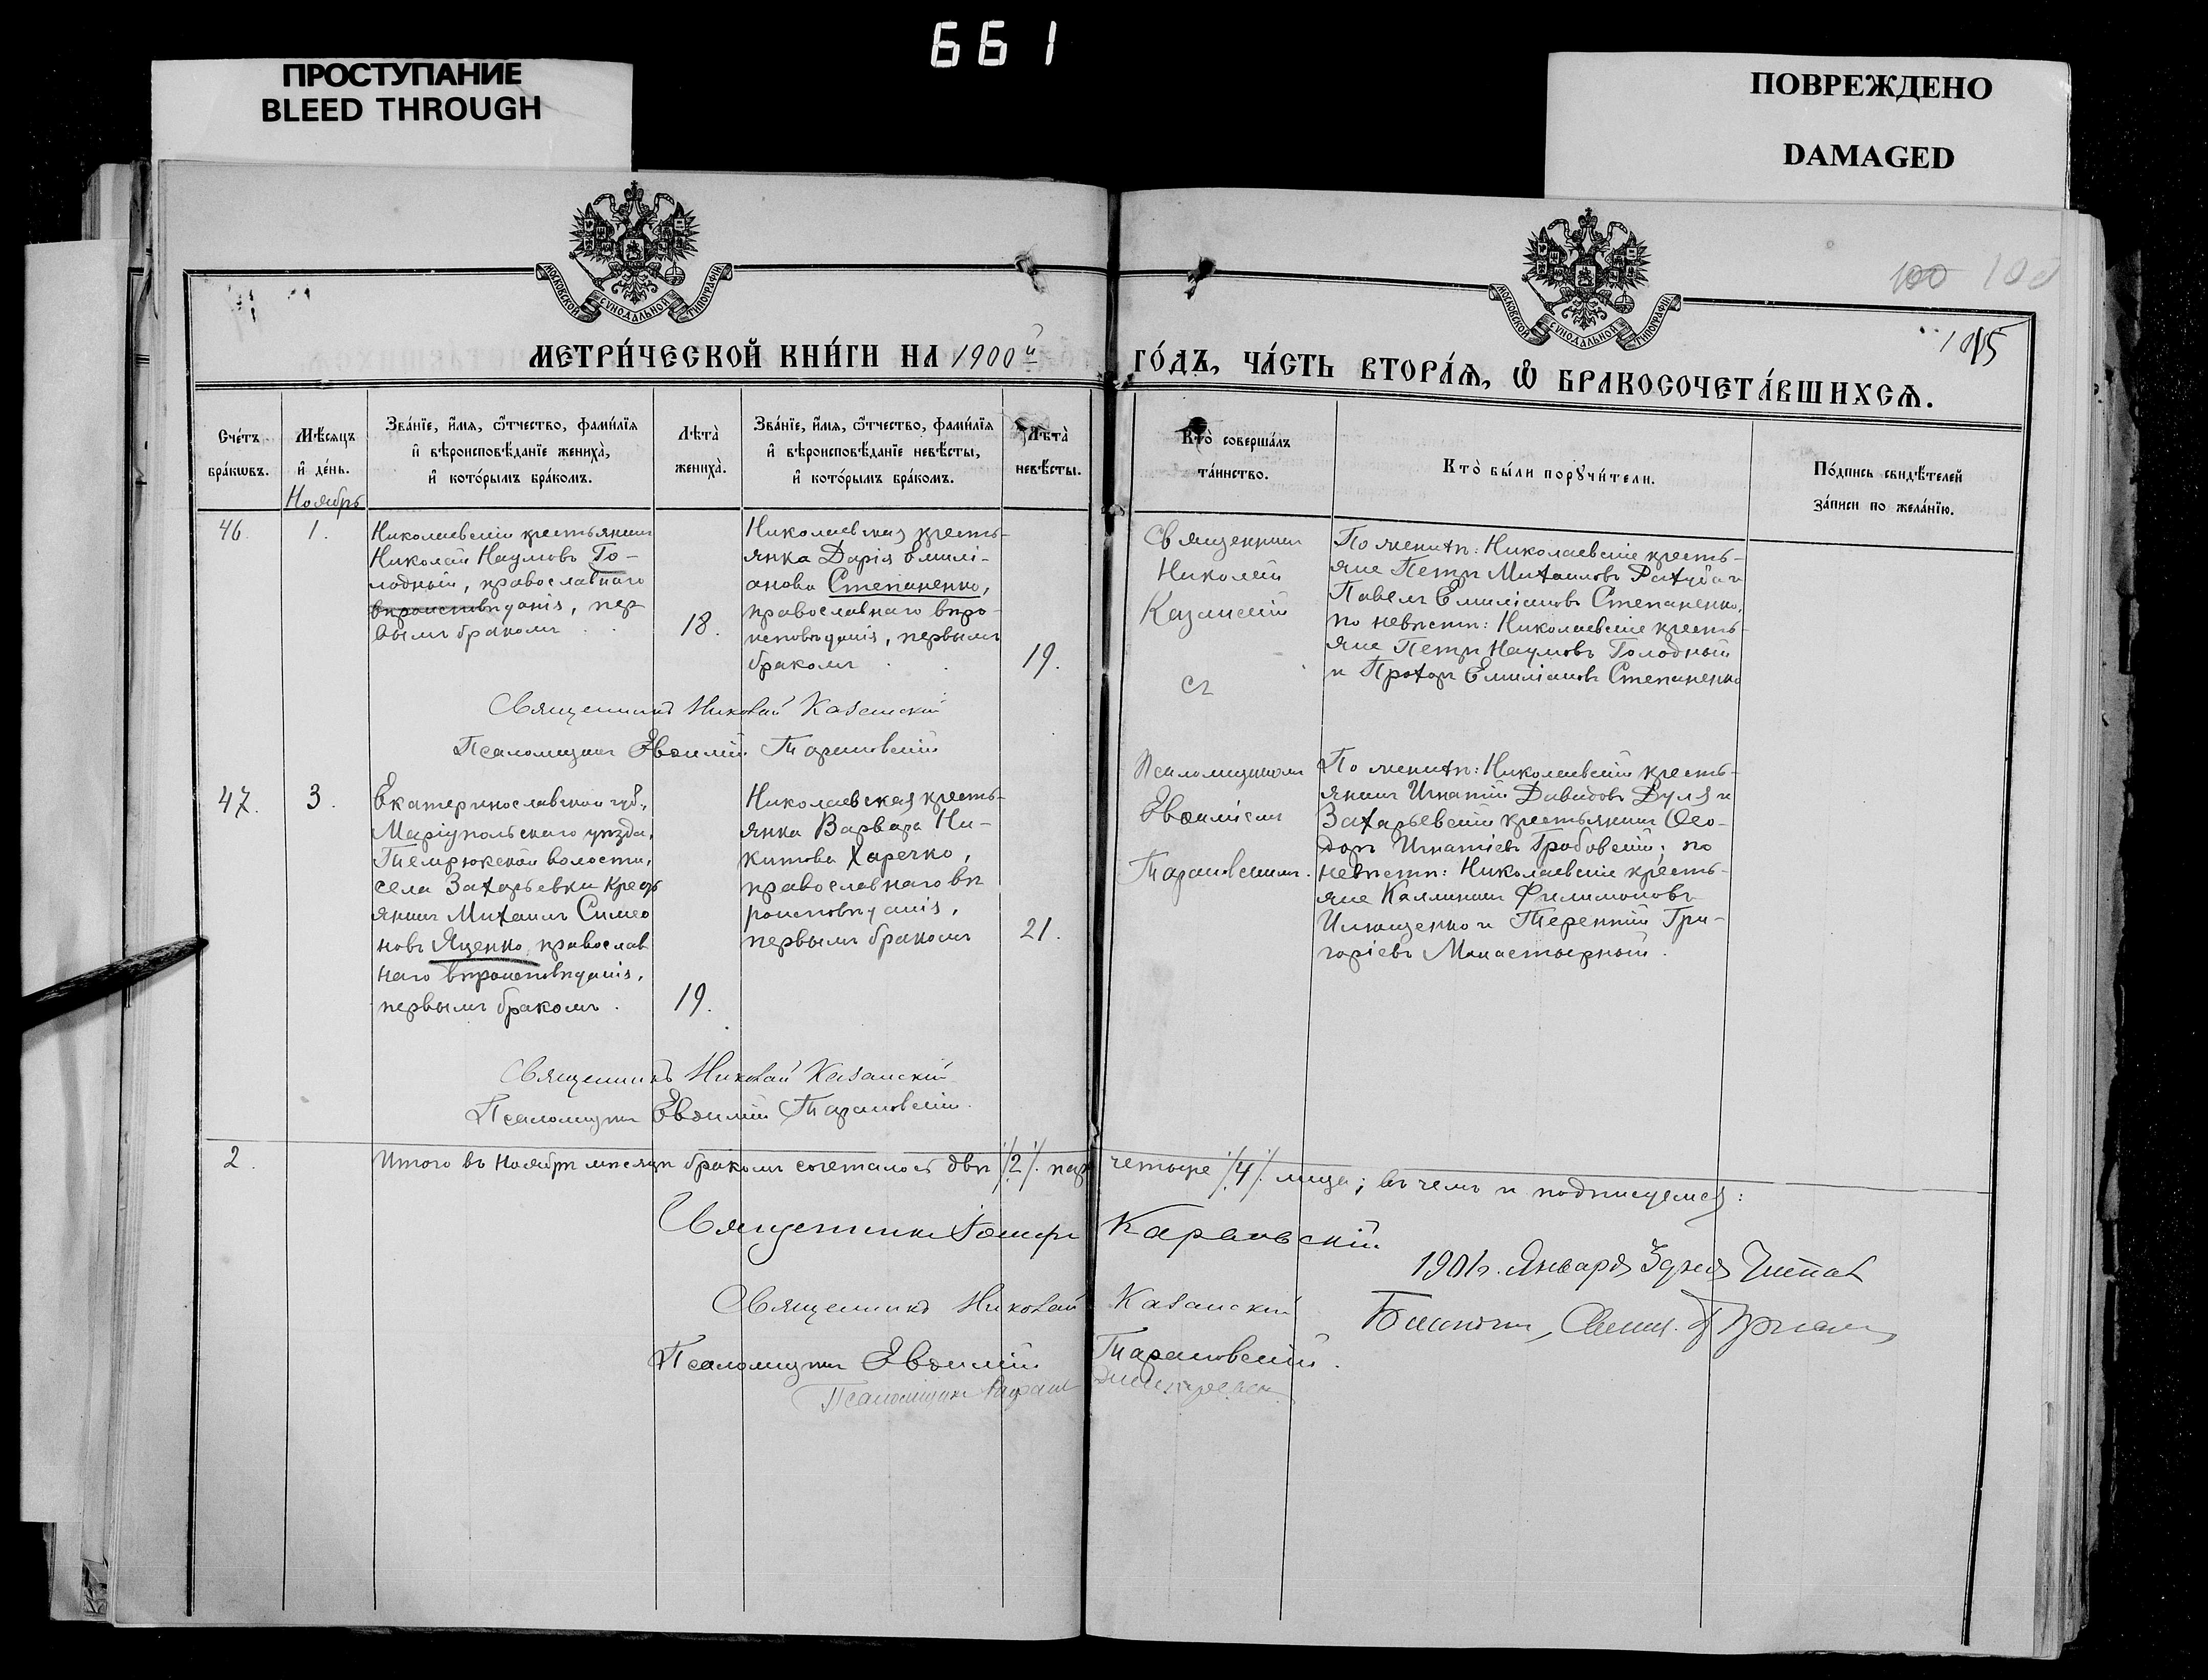 661
ПРОСТУПАНИЕ
BLEED THROUGH
ПОВРЕЖДЕНО
DAMAGED
МОСКОВСКОЙ СУНОДАЛЬНОЙ ТИПОГРАФІИ
МОСКОВСКОЙ СУНОДАЛЬНОЙ ТИПОГРАФІИ
100 100
105
МЕТРИ́ЧЕСКОЙ КНИ́ГИ НА 1900й
ГО́ДЪ, ЧА́СТЬ ВТОРА́Ѧ, Ѽ БРАКОСОЧЕТА́ВШИХСѦ.
Сче́тъ
бра́кѡвъ.
Мѣ́сяцъ
и҆ де́нь.
Ноябрь
Зва́нїе, и҆́мѧ, ѻ҆́тчество, фами́лїѧ
и҆ вѣроисповѣ́данїе жениха̀,
и҆ кото́рымъ бра́комъ.
Лѣта̀
жениха̀.
Зва́нїе, и҆́мѧ, ѻ҆́тчество, фами́лїѧ
и҆ вѣроисповѣ́данїе невѣ́сты,
и҆ кото́рымъ бра́комъ.
Лѣта̀
невѣ́сты.
Кто̀ соверша́лъ
та́инство.
Кто̀ бы́ли порꙋчи́тели.
По́дпись свидѣ́телей
за́писи по жела́нїю.
46.
1.
Николаевскій крестьянинъ
Николай Наумовъ Го-
лодный, православнаго
вѣроисповѣданія, пер-
вымъ бракомъ
18.
Николаевская кресть-
янка Дарія Емилі-
анова Степаненко,
православнаго вѣро-
исповѣданія, первымъ
бракомъ
19.
Священникъ
Николай
Казанскій
съ
По женихѣ: Николаевскіе кресть-
яне Петръ Михаиловъ Рахуба и
Павелъ Емиліановъ Степаненко,
по невѣстѣ: Николаевскіе кресть-
яне Петръ Наумовъ Голодный
и Прохоръ Емиліановъ Степаненко
Священникъ Николай Казанскій
Псаломщикъ Евѳимій Тарановскій
47.
3.
Екатеринославской губ.,
Маріупольскаго уѣзда,
Темрюкской волости,
села Захарьевки кресть
янинъ Михаилъ Симео
новъ Яценко, православ
наго вѣроисповѣданія,
первымъ бракомъ.
19.
Николаевская кресть-
янка Варвара Ни-
китова Харечко,
православнаго вѣ
роисповѣданія,
первымъ бракомъ
21.
Псаломщикомъ
Евѳиміемъ
Тарановскимъ.
По женихѣ: Николаевскій кресть-
янинъ Игнатій Давидовъ Дуля и
Захарьевскій крестьянинъ Ѳео-
доръ Игнатіевъ Грабовскій; по
невѣстѣ: Николаевскіе кресть-
яне Каллиникъ Филимоновъ
Ильющенко и Терентій Гри-
горіевъ Монастырный.
Священникъ Николай Казанскій
Псаломщикъ Евѳимій Тарановскій.
2.
Итого въ Ноябрѣ мѣсяцѣ бракомъ сочеталось двѣ /2/ пары четыре /4/ лица; въ чемъ и подписуемся:
Священникъ Іосифъ Карповскій
Священникъ Николай Казанскій
Псаломщикъ Евѳимій Тарановскій.
Псаломщикъ
1901г. Января 3 дня Читалъ